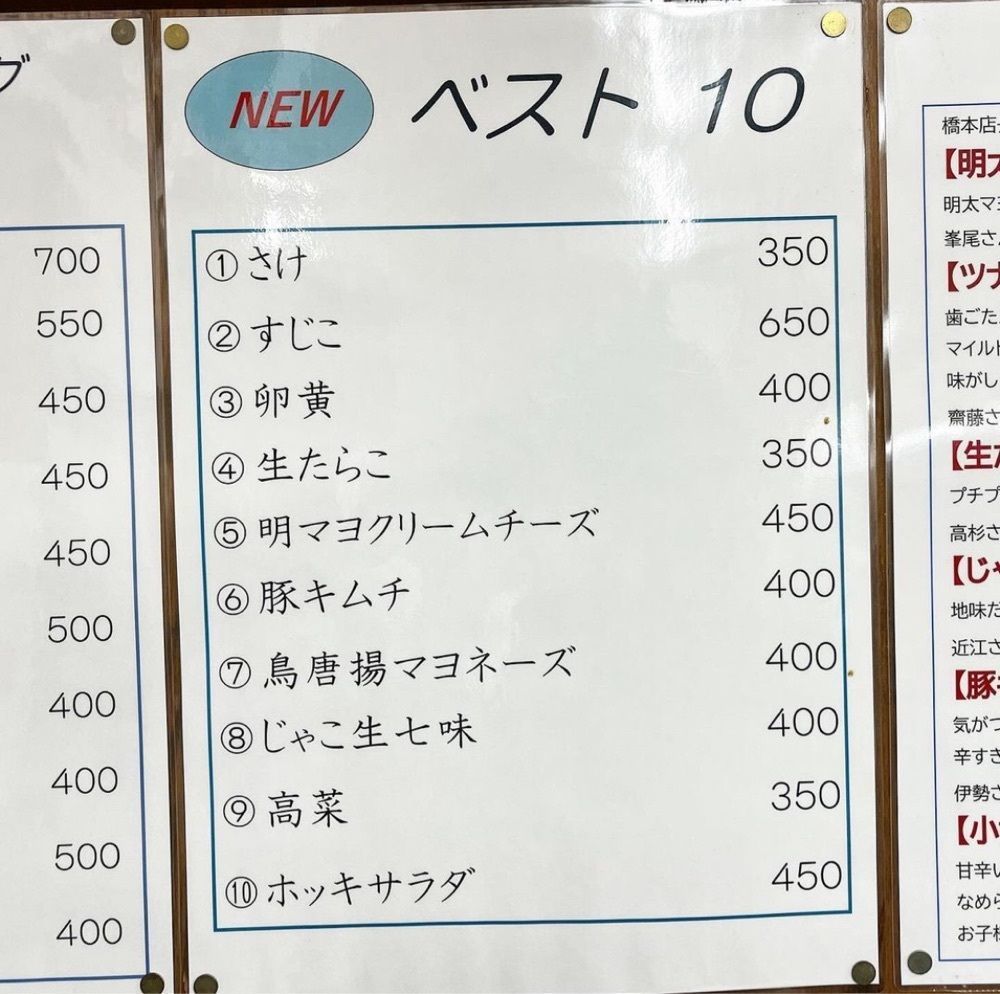 グ
700
550
450
450
450
500
400
400
500
400
NEW ベスト 10
① さけ 350
② すじこ 650
③ 卵黄 400
④ 生たらこ 350
⑤ 明マヨクリームチーズ 450
⑥ 豚キムチ 400
⑦ 鳥唐揚マヨネーズ 400
⑧ じゃこ生七味 400
⑨ 高菜 350
⑩ ホッキサラダ 450
橋本店
【明太
明太マヨ
峯尾さん
【ツナ
歯ごた
マイルド
味がし
齋藤さ
【生た
プチプ
高杉さ
【じゃ
地味だ
近江さ
【豚キ
気がつ
辛すぎ
伊勢さ
【小
甘辛い
なめら
お子様